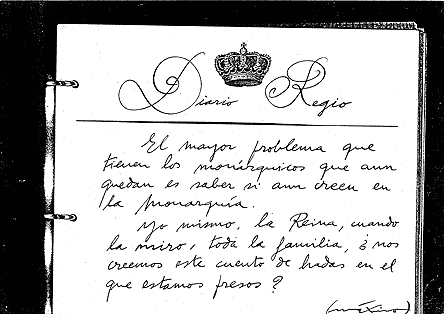 Diario Regio
El mayor problema que
tienen los monárquicos que aun
quedan es saber si aun creen en
la monarquía.
Yo mismo, la Reina, cuando
la miro, toda la familia, ¿ nos
creemos este cuento de hadas en el
que estamos presos ?